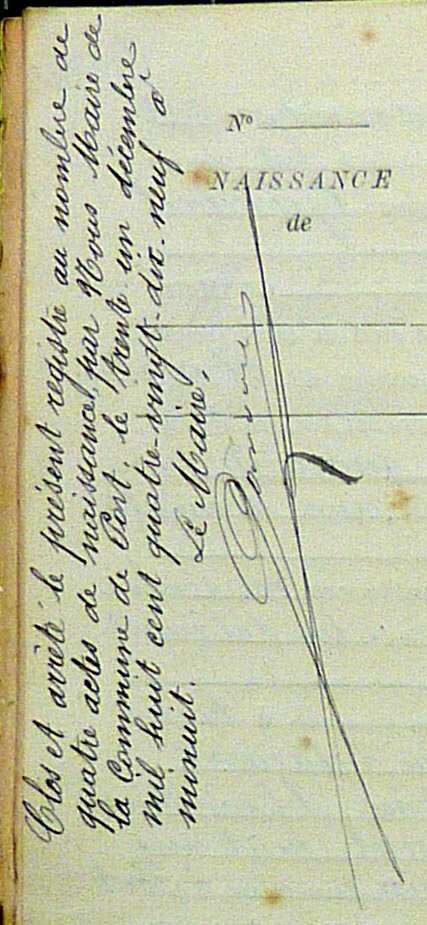 Nº
NAISSANCE
de
Clos et arrêté le présent registre au nombre de
quatre actes de naissances par Nous Maire de
la Commune de Port le trente un décembre
mil huit cent quatre-vingt-dix-neuf à
minuit.
Le Maire,